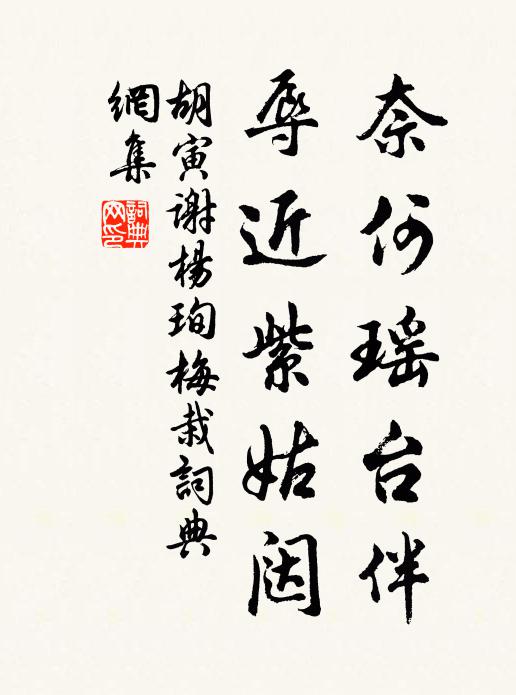 奈何瑶台伴
辱近紫姑闼
胡寅谢杨珣梅栽詞典
網集
詞典
网印